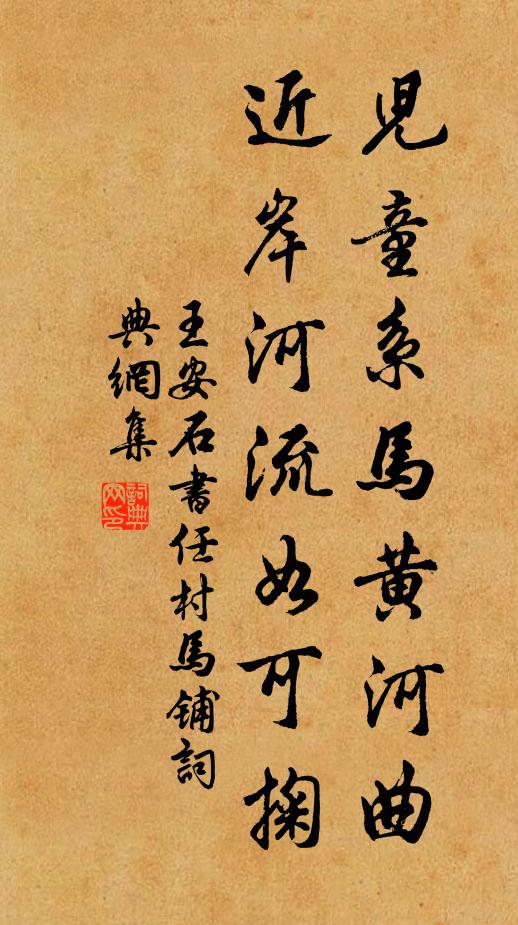 児童系馬黄河曲
近岸河流如可掬
王安石書任村馬鋪詞
典網集
詞典
网印